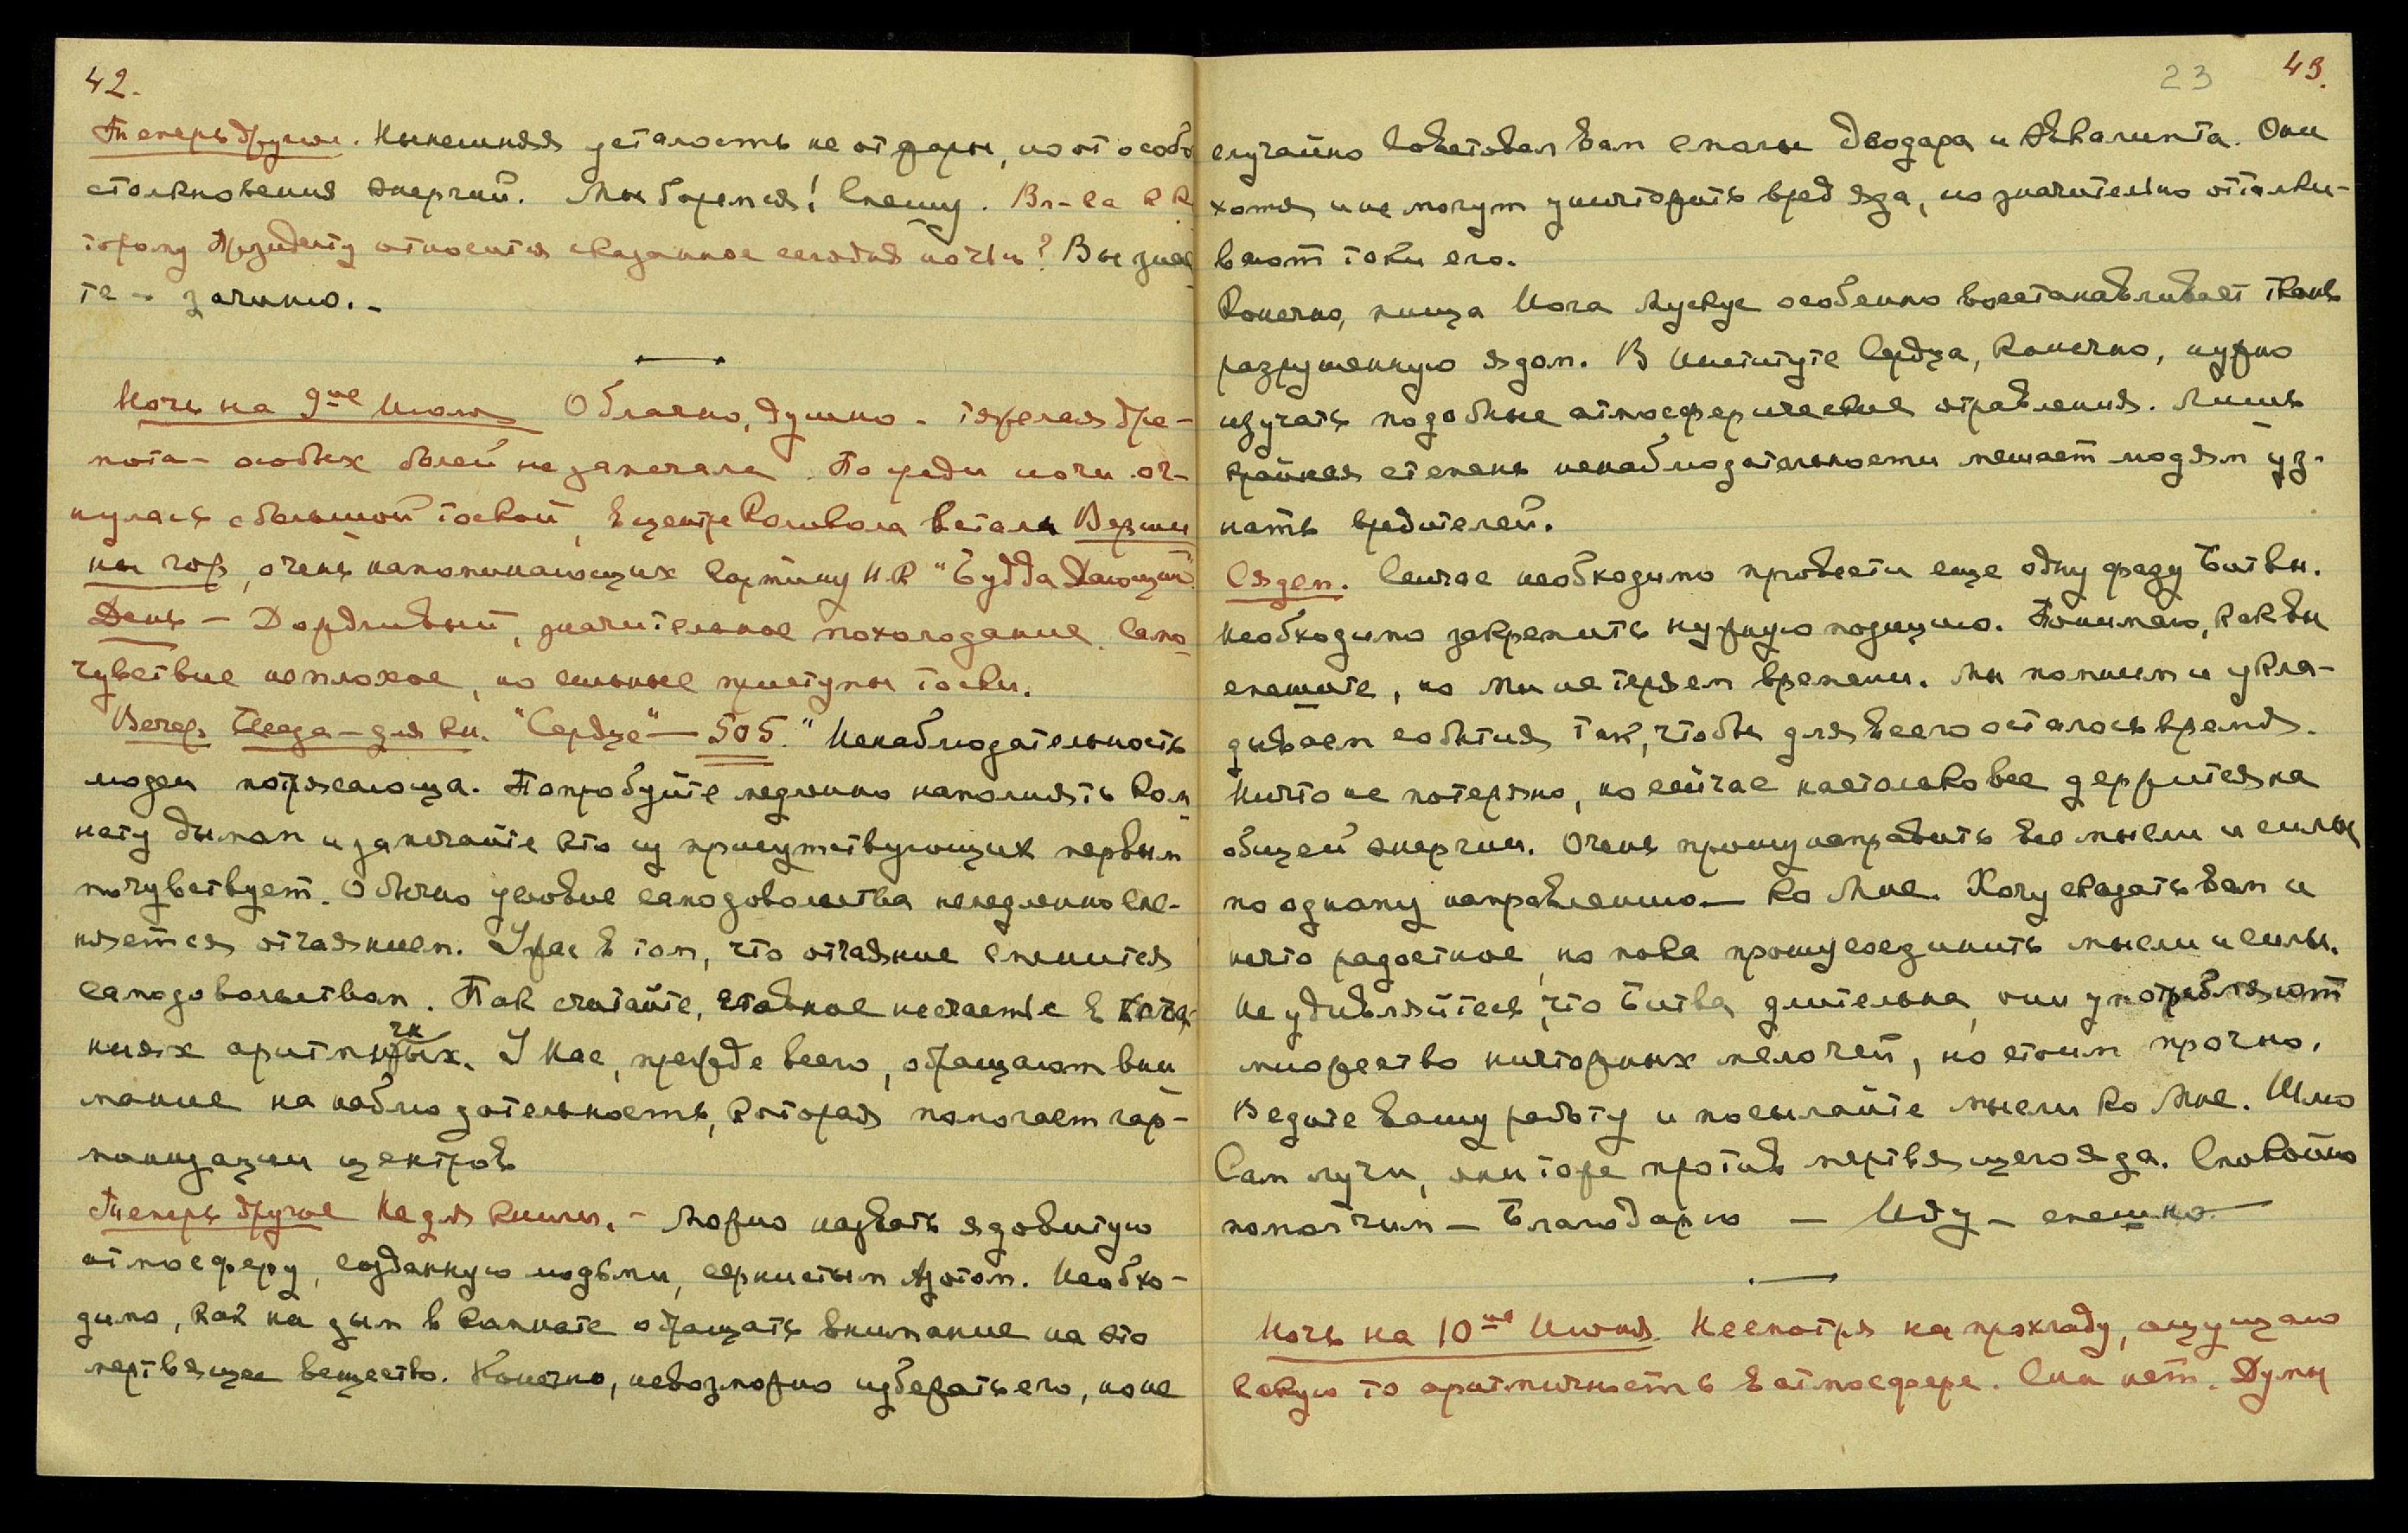 42.
Теперь другое. Нынешняя усталость не от жары, но от особо
столкновения энергий. Мы боремся! Спешу. Вл-са к к
торому Президенту относится сказанное сегодня ночью? Вы знае
те – зачиню. –
Ночь на 9ое Июля Облачно, душно – тяжелая дре-
мота – особых болей не замечала. По среди ночи оч-
нулась с большой тоской, в центре Колокола встали Верши
ны гор, очень напоминающих картину Н.К "Будда Дающий"
День – Дождливый, значительное похолодание. Само
чувствие неплохое, но сильные приступы тоски.
Вечер. Беседа – для кн. "Сердце" – 505. "Ненаблюдательность
людей потрясающа. Попробуйте медленно наполнять ком
нату дымом и замечайте кто из присутствующих первым
почувствует. Обычно условие самодовольства немедленно сме-
няется отчаянием. Ужас в том, что отчаяние сменится
самодовольством. Так считайте, главное несчастье в кача
ниях аритмичных. У Нас, прежде всего, обращают вни
мание на наблюдательность, которая помогает гар-
монизации центров
Теперь другое Не для книги. – Можно назвать ядовитую
атмосферу, созданную людьми, сернистым Азотом. Необхо-
димо, как на дым в комнате обращать внимание на это
мертвящее вещество. Конечно, невозможно избежать его, но не
23 43.
случайно Советовал вам смолы Деодара и Эвкалипта. Они
хотя и не могут уничтожить вред яда, но значительно отталки-
вают токи его.
Конечно, пища Йога Мускус особенно восстанавливает ткань
разрушенную ядом. В Институте Сердца, конечно, нужно
изучать подобные атмосферические отравления. Лишь
крайняя степень ненаблюдательности мешает людям уз-
нать вредителей.
Сядем. Сейчас необходимо провести еще одну фазу Битвы.
Необходимо закрепить нужную позицию. Понимаю, как вы
спешите, но Мы не теряем времени. Мы помним и укла-
дываем события так, чтобы для всего осталось время.
Ничто не потеряно, но сейчас настолько все держится на
общей энергии. Очень прошу направить все мысли и силы
по одному направлению – Ко Мне. Хочу сказать вам и
нечто радостное, но пока прошу соединить мысли и силы.
Не удивляйтесь, что Битва длительна, они употребляют
множество ничтожных мелочей, но стоим прочно.
Ведите вашу работу и посылайте мысли Ко Мне. Шлю
Сам лучи, они тоже против мертвящего яда. Спокойно
помолчим – Благодарю – Иду – спешно –
Ночь на 10ое Июня. Несмотря на прохладу, ощущаю
какую то аритмичность в атмосфере. Сна нет. Думы